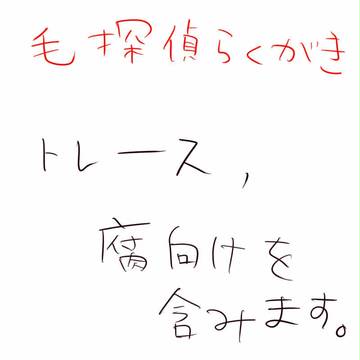 毛探偵らくがき
トレース,
腐向けを
含みます。